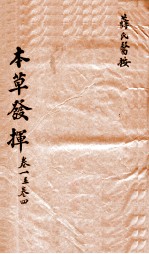 薛氏醫按
本草發揮
卷一至卷四